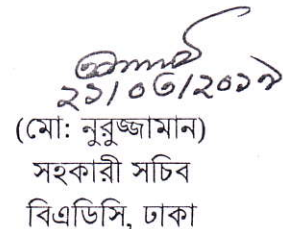 ২১/০৩/২০১৭
(মো: নুরুজ্জামান)
সহকারী সচিব
বিএডিসি, ঢাকা